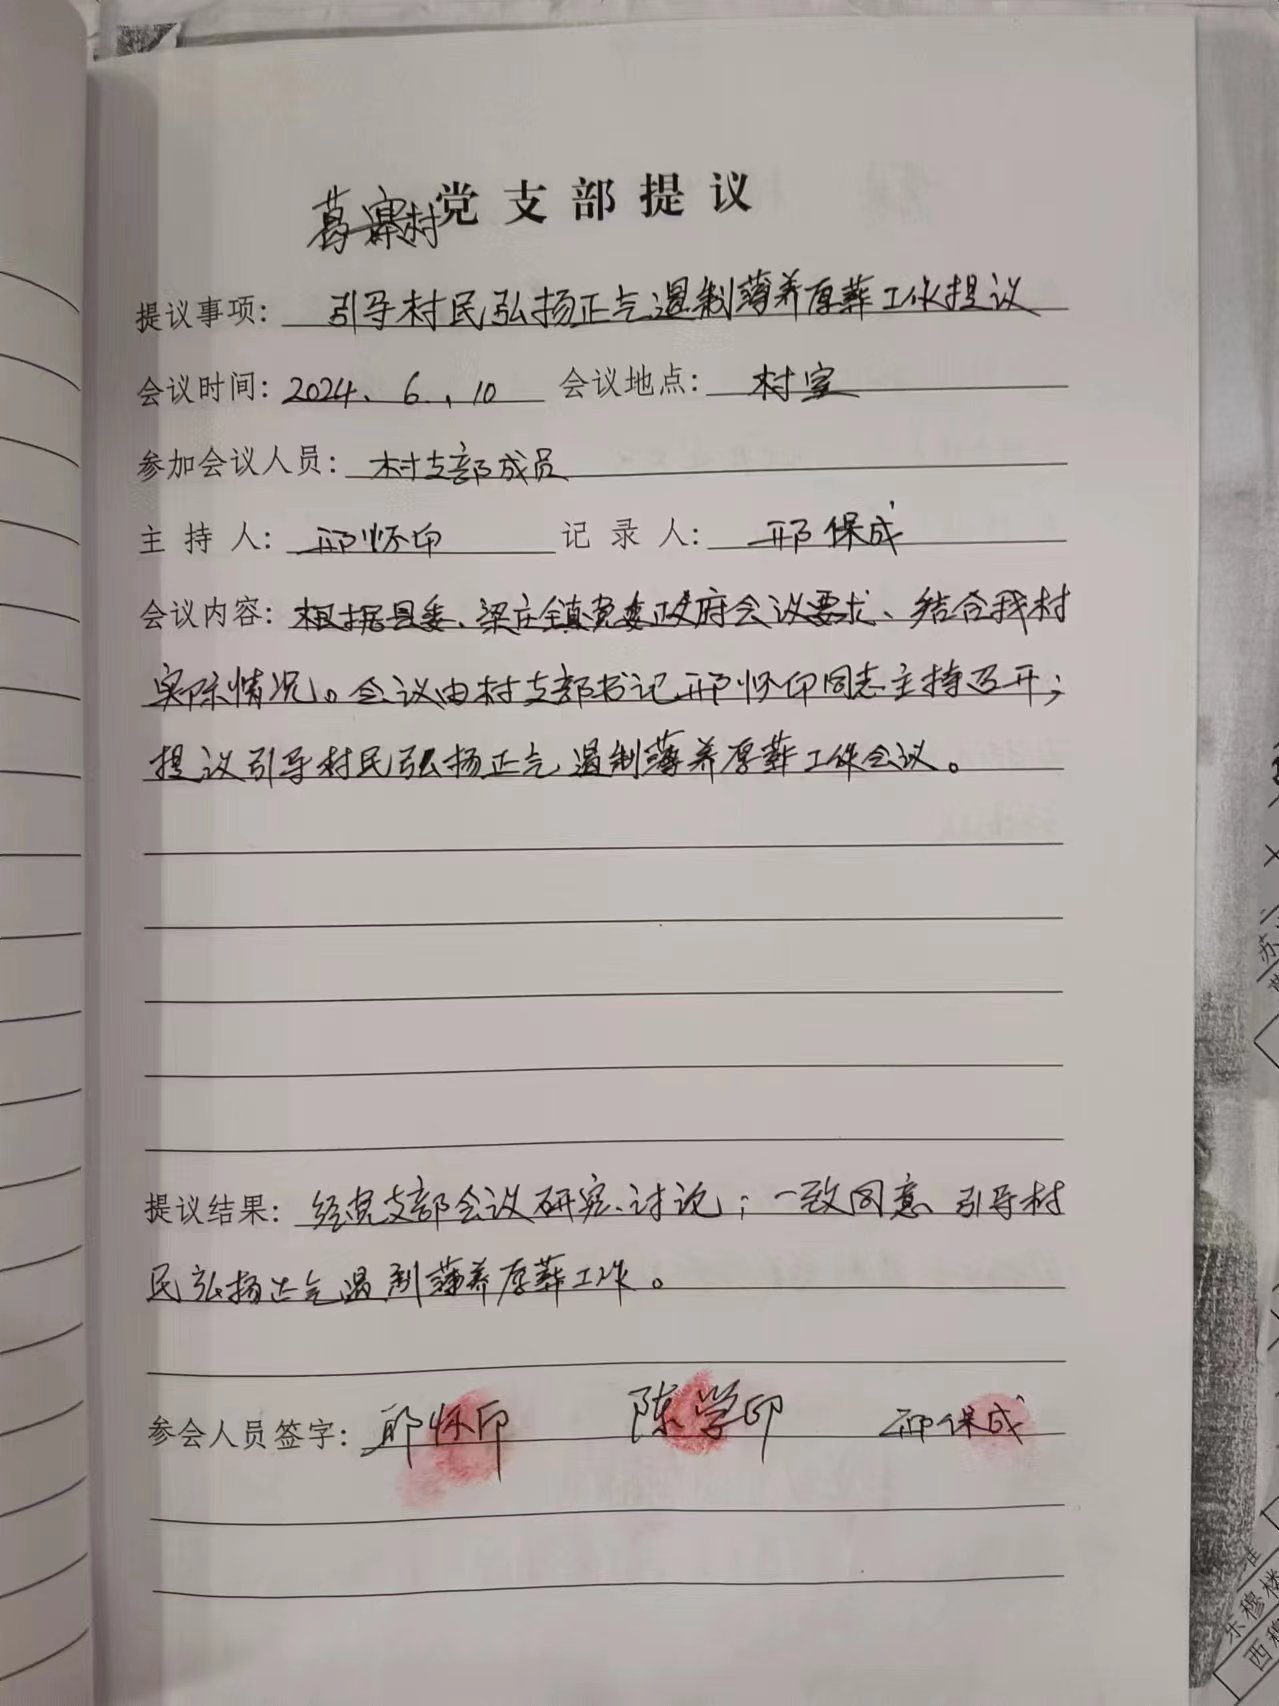 葛寨村党支部提议
提议事项：引导村民弘扬正气遏制薄养厚葬工作提议
会议时间：2024、6、10 会议地点：村室
参加会议人员：村支部成员
主持人：邢怀印 记录人：邢保成
会议内容：根据县委、梁庄镇党委政府会议要求、结合我村
实际情况。会议由村支部书记邢怀印同志主持召开；
提议引导村民弘扬正气遏制薄养厚葬工作会议。
提议结果：经党支部会议研究、讨论；一致同意引导村
民弘扬正气遏制薄养厚葬工作。
参会人员签字：邢怀印 陈学印 邢保成
苏
东穆楼
西穆